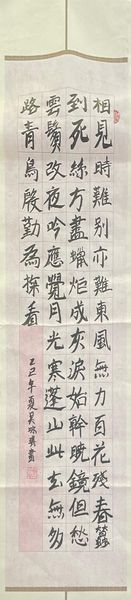 相見時難別亦難東風無力百花殘春蠶
到死絲方盡蠟炬成灰淚始幹曉鏡但愁
雲鬢改夜吟應覺月光寒蓬山此去無多
路青鳥殷勤為探看
乙巳年夏吳